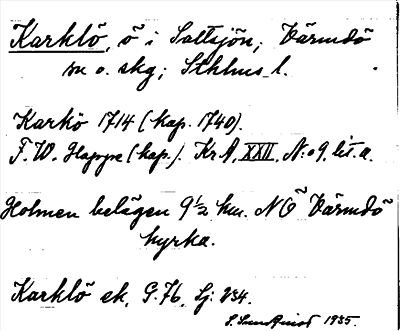 Karklö, ö i Saltsjön, Värmdö
sn o. skg; Sthlms l.
Karkö 1714 (kap. 1740).
F. W. Happe (kap.). KrA, XXII, N:o 9, lit. a.
Holmen belägen 9 1/2 km. NO Värmdö
kyrka.
Karklö ek. G. 76, Lj: 234.
1935.